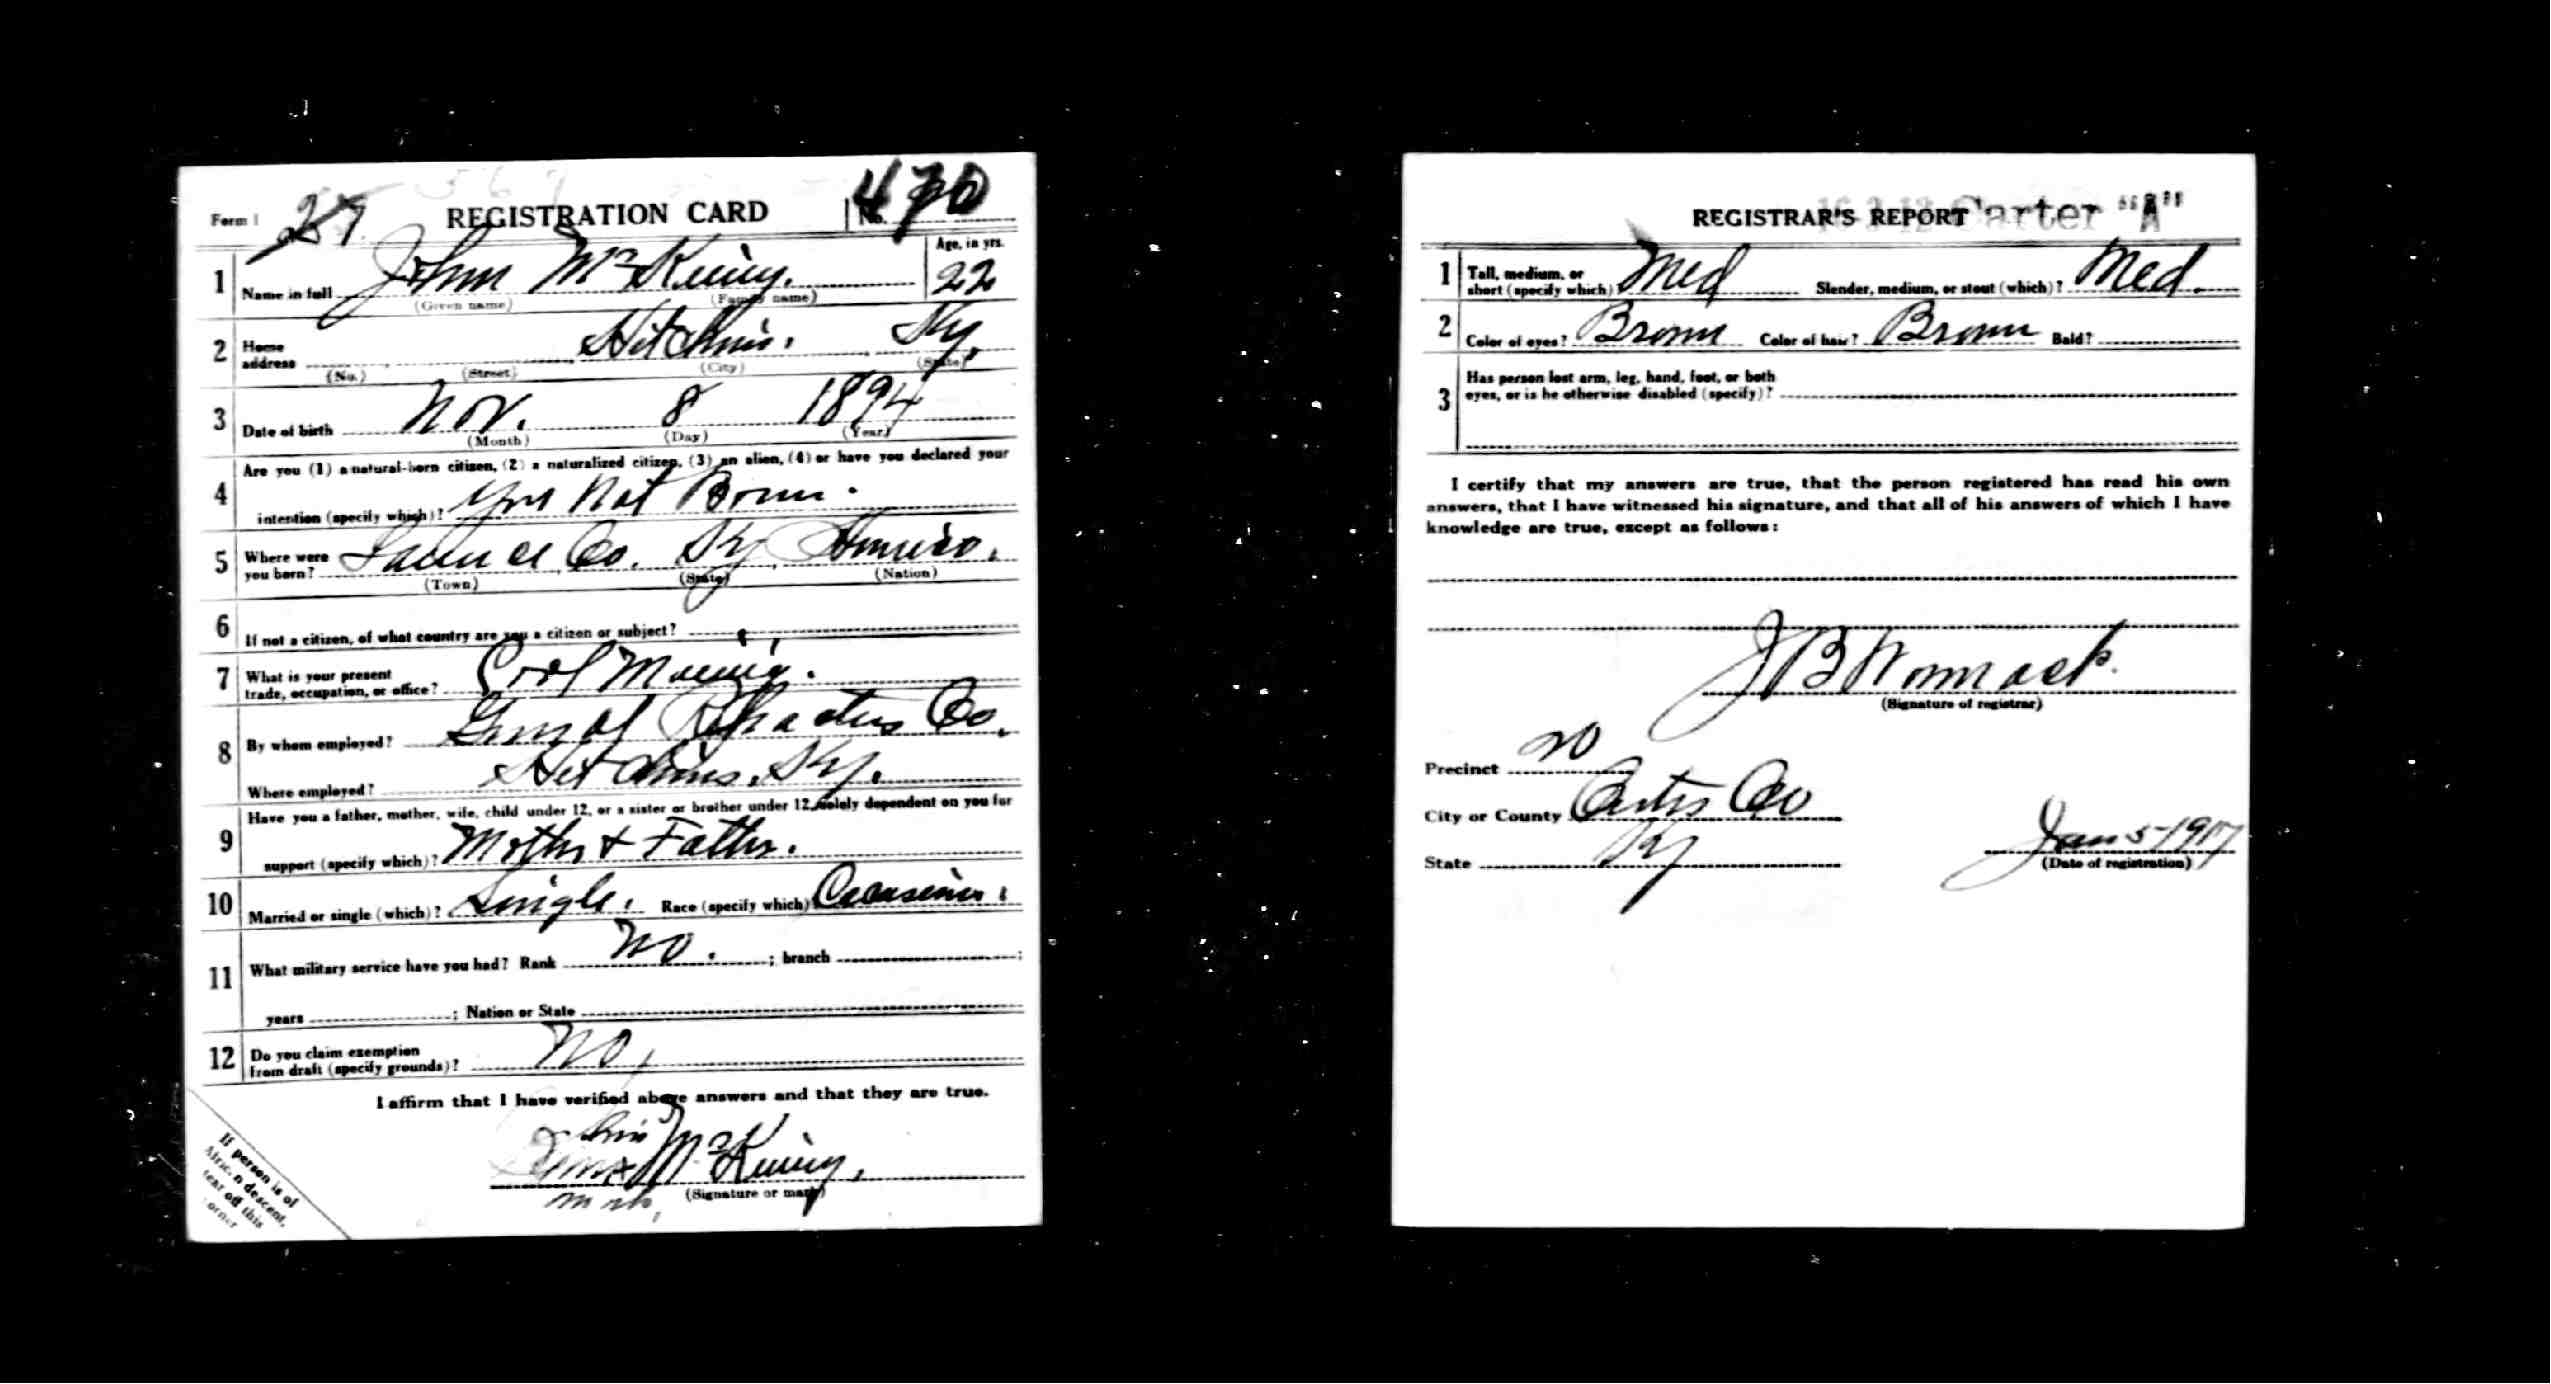 Form 1 REGISTRATION CARD No. 470
1 Name in full John McKinny. Age, in yrs. 22
(Given name) (Family name)
2 Home address Hitchins. Ky.
(No.) (Street) (City) (State)
3 Date of birth Nov. 8 1894
(Month) (Day) (Year)
4 Are you (1) a natural-born citizen, (2) a naturalized citizen, (3) an alien, (4) or have you declared your
intention (specify which)? Yes Nat Born.
5 Where were you born? Co. Ky
(Town) (State) (Nation)
6 If not a citizen, of what country are you a citizen or subject?
7 What is your present
trade, occupation, or office?
8 By whom employed? Co.
Where employed? Hitchins, Ky.
9 Have you a father, mother, wife, child under 12, or a sister or brother under 12, solely dependent on you for
support (specify which)? Mother & Father.
10 Married or single (which)? Single. Race (specify which)
11 What military service have you had? Rank No. ; branch ;
years ; Nation or State
12 Do you claim exemption
from draft (specify grounds)? No,
I affirm that I have verified above answers and that they are true.
his
John x McKinny,
(Signature or mark)
mark,
If person is of
African descent,
tear off this
corner
REGISTRAR'S REPORT Carter "A"
1 Tall, medium, or
short (specify which) Med Slender, medium, or stout (which)? Med.
2 Color of eyes? Brown Color of hair? Brown Bald?
3 Has person lost arm, leg, hand, foot, or both
eyes, or is he otherwise disabled (specify)?
I certify that my answers are true, that the person registered has read his own
answers, that I have witnessed his signature, and that all of his answers of which I have
knowledge are true, except as follows:
J B Womack.
(Signature of registrar)
Precinct 20
City or County Carter Co
State Ky
(Date of registration)